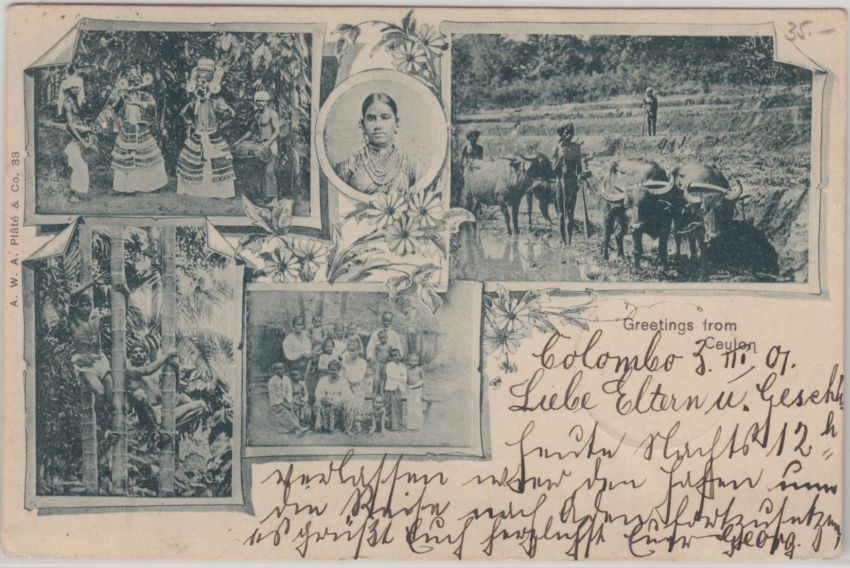 35.-
A. W. A. Plâté & Co. 33
Greetings from
Ceylon
Colombo 3. III. 01.
Liebe Eltern u. Gesch
heute Nachts 12 h
verlassen wier den Hafen umm
die Reise nach Aden fortzusetzen
es grüßt Euch herzlichst Euer Georg.